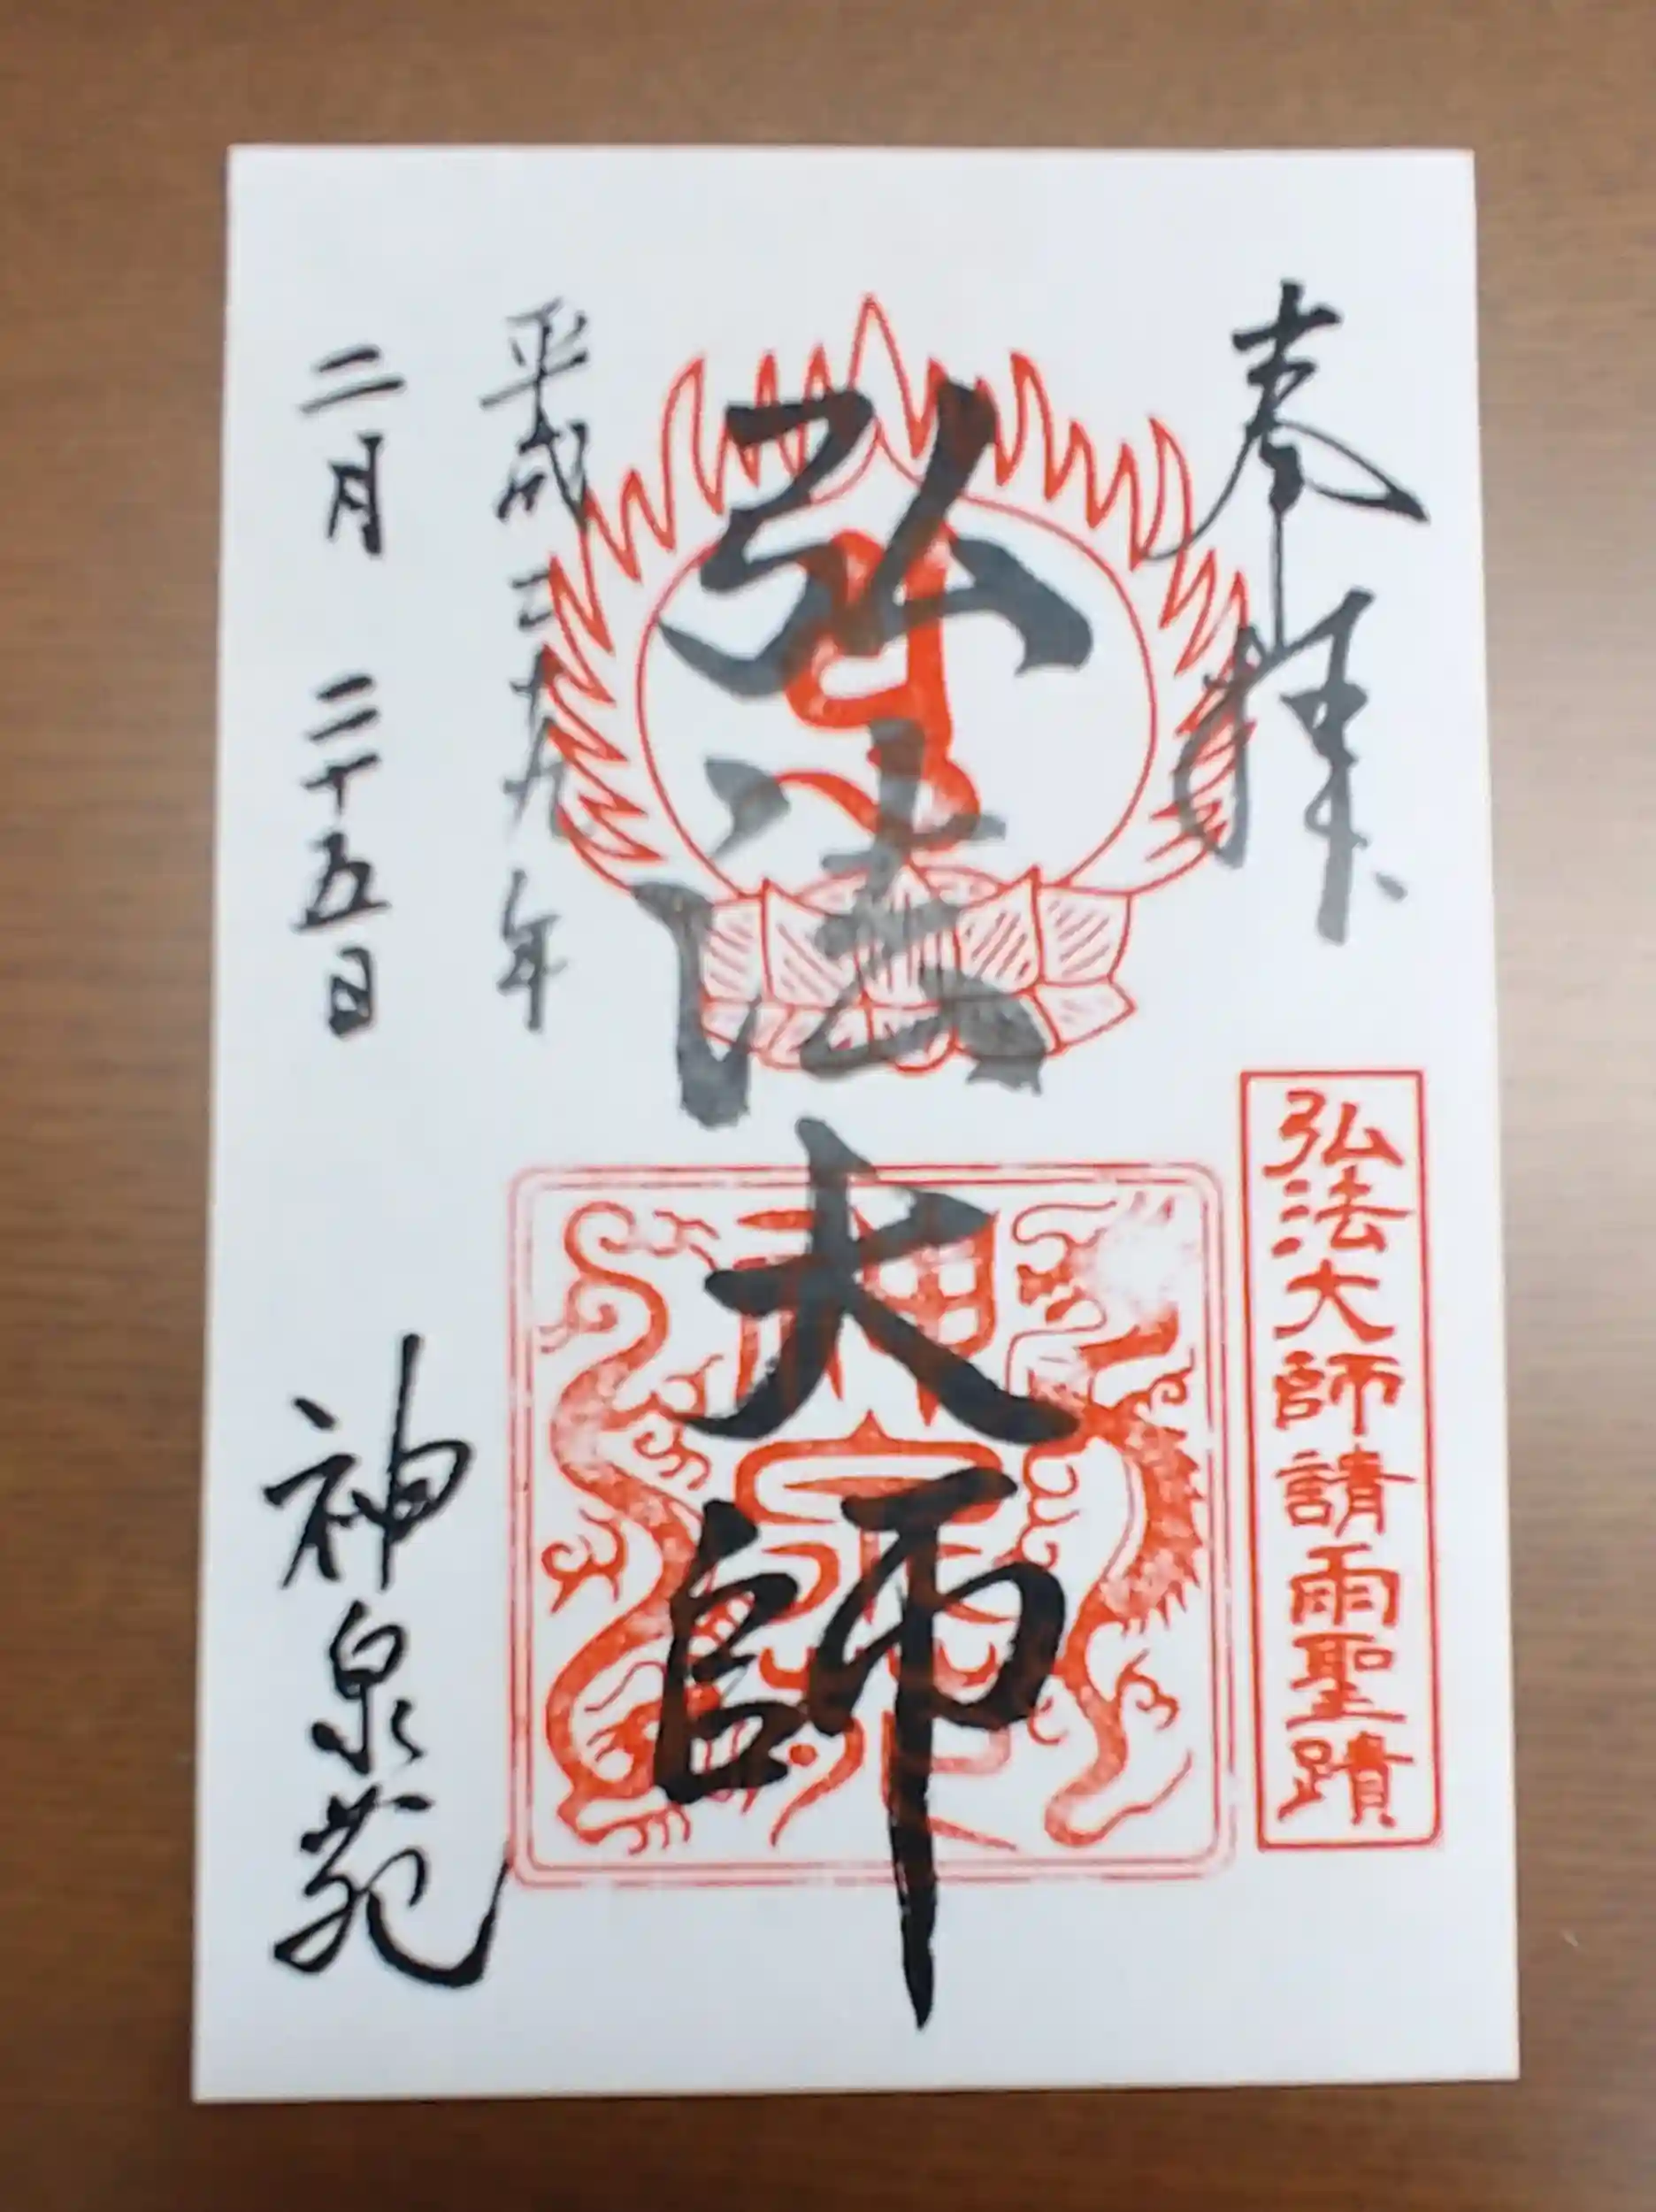 奉拝
弘法大師請雨聖蹟
弘法大師
平成二十九年
二月 二十五日
神泉苑